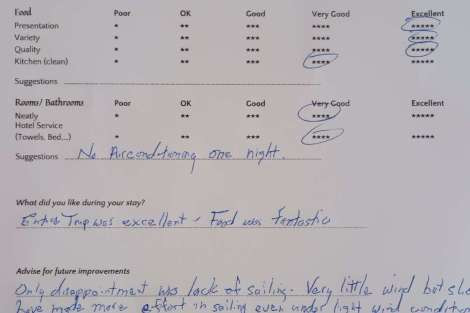 Food Poor OK Good Very Good Excellent
Presentation * ** *** **** *****
Variety * ** *** **** *****
Quality * ** *** **** *****
Kitchen (clean) * ** *** **** *****
Suggestions
Rooms/ Bathrooms Poor OK Good Very Good Excellent
Neatly * ** *** **** *****
Hotel Service
(Towels, Bed,..) * ** *** **** *****
Suggestions No Airconditioning one night.
What did you like during your stay?
Entire Trip was excellent - Food was fantastic
Advise for future improvements
Only disappointment was lack of sailing. Very little wind but
have made more effort in sailing even under light wind